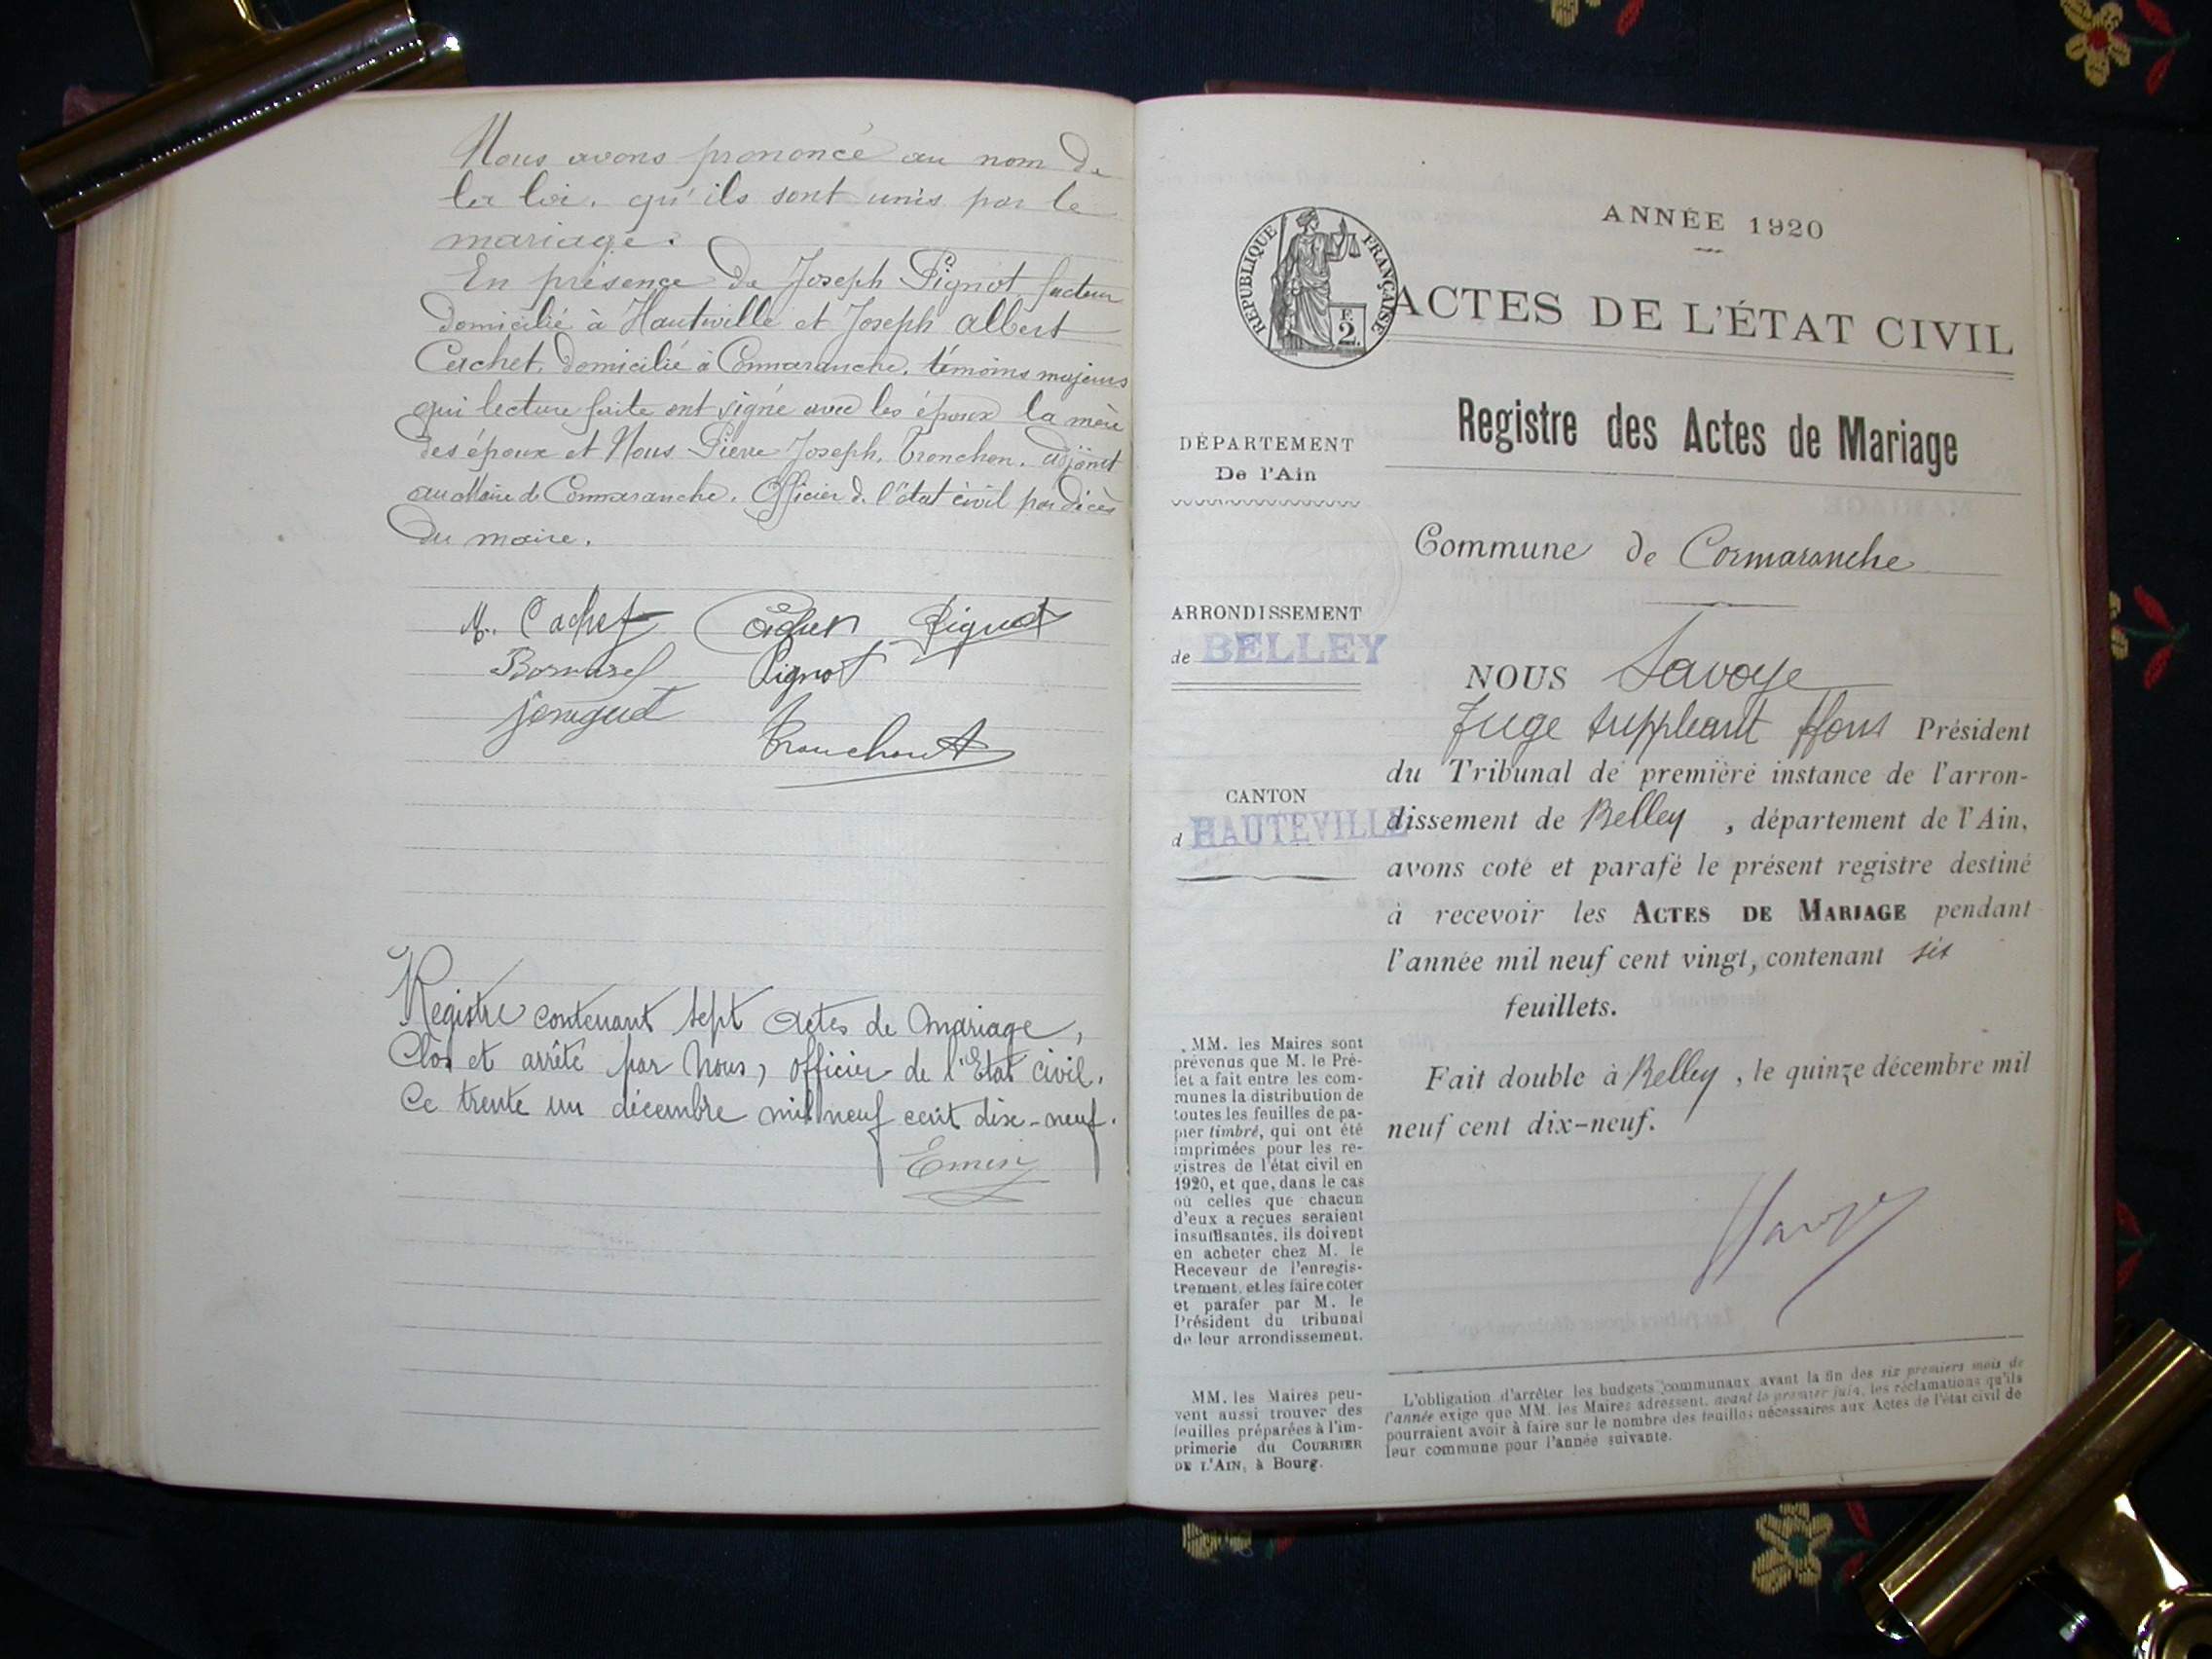 Nous avons prononcé au nom de
la loi, qu'ils sont unis par le
mariage.
En présence de Joseph Pignot facteur
domicilié à Hauteville et Joseph Albert
Cachet, domicilié à Cormaranche, témoins majeurs
qui lecture faite ont signé avec les époux la mère
des époux et Nous Pierre Joseph, Tronchon, adjoint
au Maire de Cormaranche. Officier de l'état civil par décès
du maire.
M. Cachet Pignot
Bornarel Pignot
Registre contenant sept actes de mariage,
Clos et arrêté par Nous, officier de l'Etat civil,
Ce trente un décembre mil neuf cent dix-neuf.
ANNÉE 1920
RÉPUBLIQUE FRANÇAISE
F. 2
ACTES DE L'ÉTAT CIVIL
Registre des Actes de Mariage
DÉPARTEMENT
De l'Ain
Commune de Cormaranche
ARRONDISSEMENT
de BELLEY
NOUS Savoye
Juge suppléant ffons Président
du Tribunal de première instance de l'arron-
CANTON
d HAUTEVILLE
dissement de Belley , département de l'Ain,
avons coté et parafé le présent registre destiné
à recevoir les ACTES DE MARIAGE pendant
l'année mil neuf cent vingt, contenant six
feuillets.
Fait double à Belley , le quinze décembre mil
neuf cent dix-neuf.
MM. les Maires sont
prévenus que M. le Pré-
fet a fait entre les com-
munes la distribution de
toutes les feuilles de pa-
pier timbré, qui ont été
imprimées pour les re-
gistres de l'état civil en
1920, et que, dans le cas
où celles que chacun
d'eux a reçues seraient
insuffisantes, ils doivent
en acheter chez M. le
Receveur de l'enregis-
trement, et les faire coter
et parafer par M. le
Président du tribunal
de leur arrondissement.
MM. les Maires peu-
vent aussi trouver des
feuilles préparées à l'im-
primerie du COURRIER
DE L'AIN, à Bourg.
L'obligation d'arrêter les budgets communaux avant la fin des six premiers mois de
l'année exige que MM. les Maires adressent, avant le premier juin, les réclamations qu'ils
pourraient avoir à faire sur le nombre des feuilles nécessaires aux Actes de l'état civil de
leur commune pour l'année suivante.